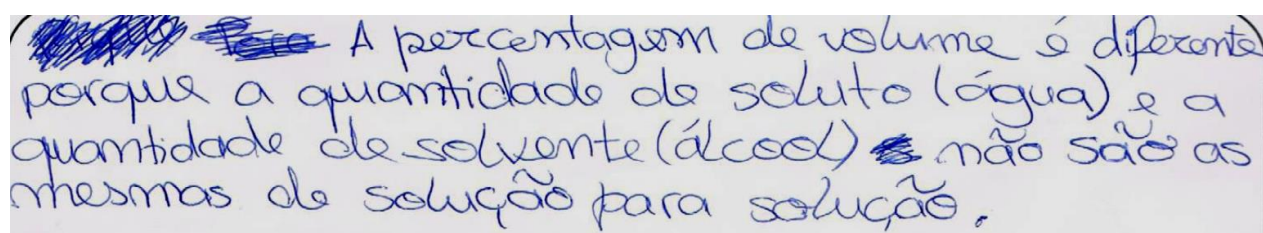 A percentagem de volume é diferente
porque a quantidade de soluto (água) e a
quantidade de solvente (álcool) não são as
mesmas de solução para solução.